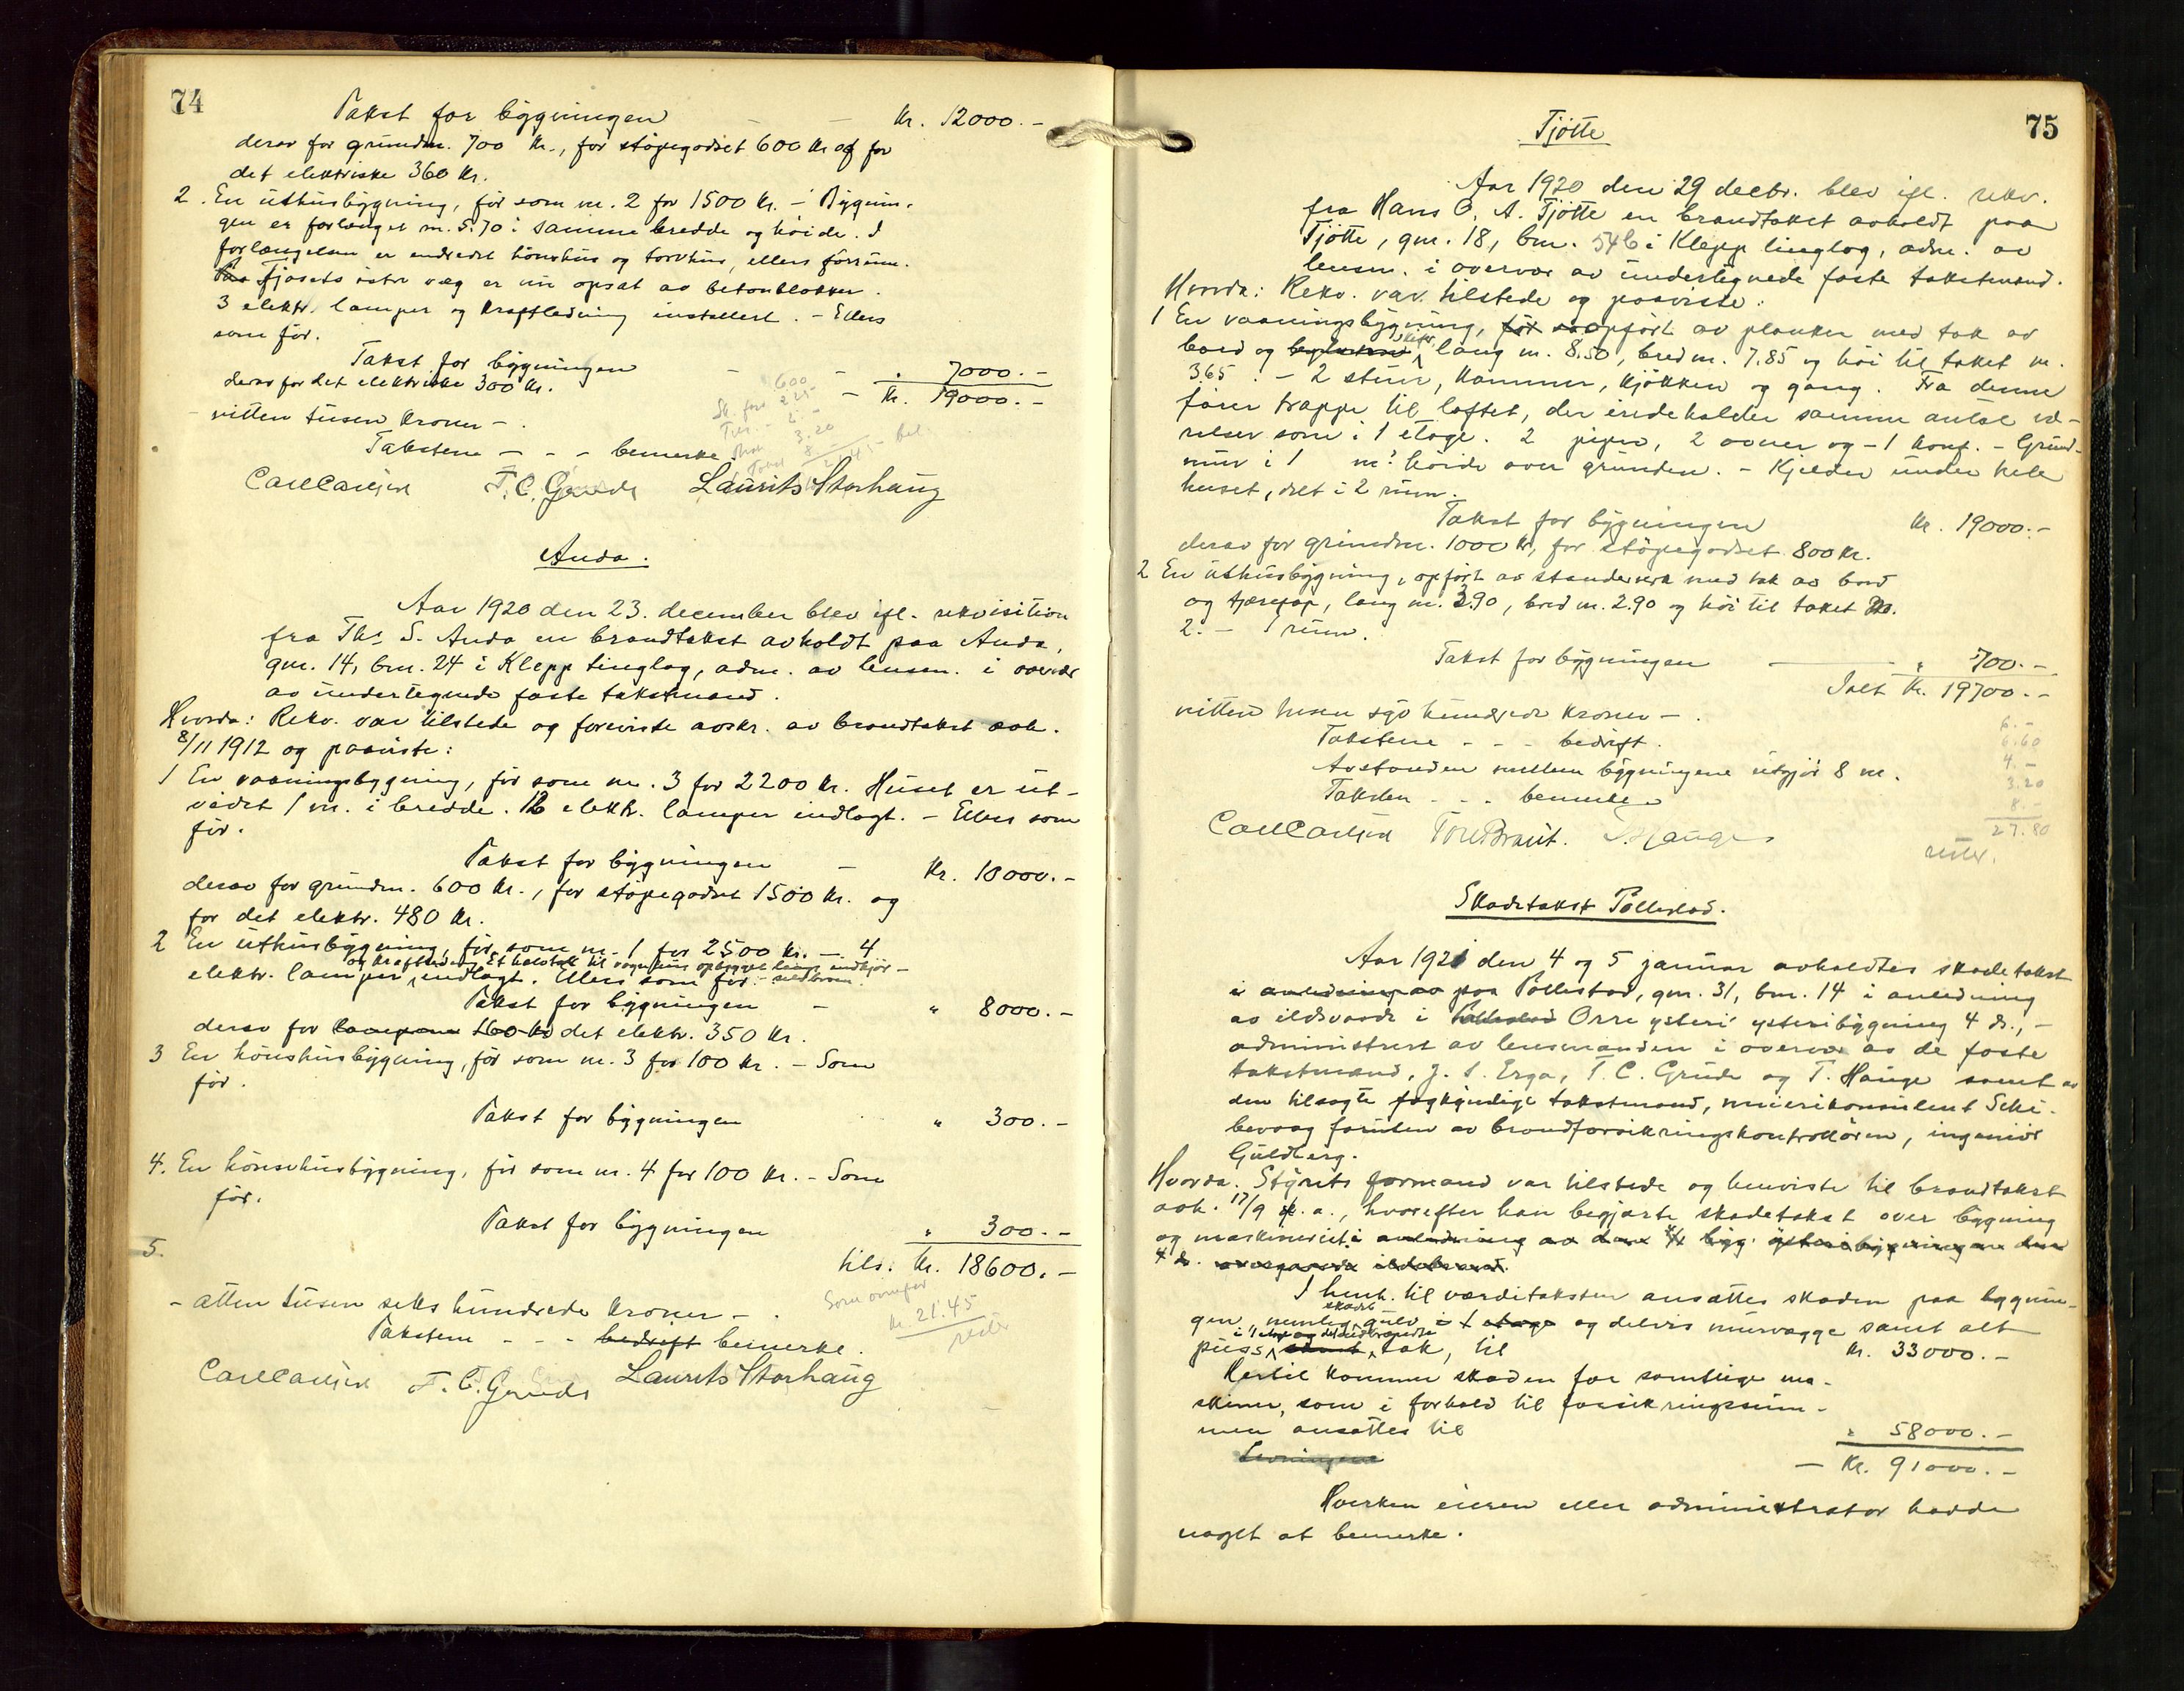 74
Takst for bygningen — — Kr. 12000.-
derav for grundm. 700 Kr., for støpegodset 600 Kr og for
det elektriske 360 Kr.
2. En uthusbygning, før som nr. 2 for 1500 Kr. - Bygnin-
gen er forlænget m. 5.70 i samme bredde og høide. I
forlængelsen er indredet hønshus og torvhus, ellers førrum.
fjøsets østre væg er nu opsat av betonblokker.
3 elektr. lamper og kraftledning installert. - Ellers
som før.
Takst for bygningen — — " 7000.-
derav for det elektriske 300 Kr. — Kr. 19000.-
nitten tusen kroner - .
Takstene - - - bemerke.
Carl Carlsen T. C. Grude Laurits Storhaug
Anda.
Aar 1920 den 23. december blev ifl. rekvisition
fra Ths S. Anda en brandtakst avholdt paa Anda,
gnr. 14, bnr. 24 i Klepp tinglag, adm. av lensm. i overvær
av undertegnede faste takstmænd.
Hvorda: Rekv. var tilstede og foreviste avskr. av brandtakst avh.
8/11 1912 og paaviste:
1 En vaaningsbygning, før som nr. 3 for 2200 Kr. Huset er ut-
videt 1 m. i bredde. 12 elektr. lamper indlagt. - Ellers som
før.
Takst for bygningen — Kr. 10000.-
derav for grundm. 600 Kr., for støpegodset 1500 Kr. og
for det elektr. 480 Kr.
2 En uthusbygning, før som nr. 1 for 2500 Kr. - 4
og kraftledn. Et halvtak til vognhus opbygget langs indkjør-
elektr. lamper indlagt. Ellers som før.
Takst for bygningen — " 8000.-
derav for lampene 160 Kr det elektr. 350 Kr.
3 En hønshusbygning, før som nr. 3 for 100 Kr. - Som
før.
Takst for bygningen " 300.-
4. En hønsehusbygning, før som nr. 4 for 100 Kr. - Som
før.
Takst for bygningen " 300.-
5.
tils. Kr. 18600.-
- atten tusen seks hundrede kroner - .
Som ovenfor
Kr. 21.45
Takstene - - - bedrift bemerke.
Carl Carlsen T. C. Grude Laurits Storhaug
75
Tjøtte
Aar 1920 den 29 decbr. blev ifl. rekv.
fra Hans O. A. Tjøtte en brandtakst avholdt paa
Tjøtte, gnr. 18, bnr. 546 i Klepp tinglag, adm. av
lensm. i overvær av undertegnede faste takstmænd.
Hvorda: Rekv. var tilstede og paaviste:
1 En vaaningsbygning, før so opført av planker med tak av
bord og lang m. 8.50, bred m. 7.85 og høi til taket m.
3.65. - 2 stuer, kammer, kjøkken og gang. Fra denne
fører trappe til loftet, der indeholder samme antal væ-
relser som i 1 etage. 2 piper, 2 ovner og - 1 komf. - Grund-
mur i 1 m's høide over grunden. - Kjelder under hele
huset, delt i 2 rum.
Takst for bygningen Kr. 19000.-
derav for grundm. 1000 Kr, for støpegodset 800 Kr.
2 En uthusbygning, opført av standerverk med tak av bord
og tjærepap, lang m. 3.90, bred m. 2.90 og høi til taket m.
2. - 1 rum.
Takst for bygningen — " 700.-
Ialt Kr. 19700.-
nitten tusen syv hundrede kroner - .
Takstene - - - bedrift.
Avstanden mellem bygningene utgjør 8 m.
Taksten - - - bemerke
6.-
6.60
4.-
3.20
8.-
27.80
Carl Carlsen Tore Braut. T. Hauge
Skadetakst Pollestad.
Aar 1921 den 4 og 5 januar avholdtes skadetakst
i anledning av paa Pollestad, gnr. 31, bnr. 14 i anledning
av ildsvaade i Pollestad Orre ysteri ysteribygning 4 ds., -
administrert av lensmanden i overvær av de faste
takstmænd, J. S. Erga, T. C. Grude og T. Hauge samt av
den tilsagte fagkyndige takstmand, meierikonsulent Sche-
bevaag foruten av brandforsikringskontrolløren, ingeniør
Guldberg.
Hvorda: Styrets formand var tilstede og henviste til brandtakst
avh. 17/9 f. a., hvorefter han begjærte skadetakst over bygning
og maskineriet i anledning av den bygg. ysteribygningen den
4 ds. overgaaede ildebrand.
I henh. til værditaksten ansattes skaden paa bygnin-
skadet
gen, nemlig gulv i 1 etage og delvis murvægge samt alt
i 1 etg og delvis brændte
puss samt tak, til Kr. 33000.-
Hertil kommer skaden for samtlige ma-
skiner, som i forhold til forsikringssum-
men ansattes til " 58000.-
Levningene
— Kr. 91000.-
Hverken eieren eller administrator hadde
noget at bemerke.